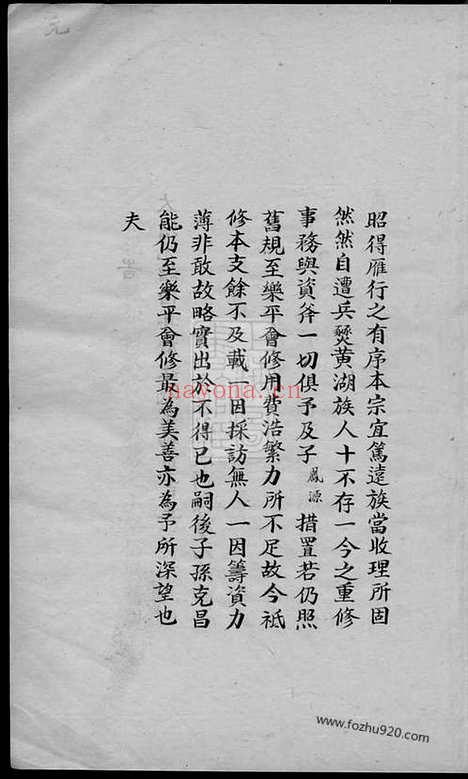 昭得雁行之有序本宗宜篤遠族當收理所固
然然自遭兵燹黄湖族人十不存一今之重修
事務與資斧一切俱予及子鳳源措置若仍照
舊規至樂平會修用費浩繁力所不足故今祗
修本支餘不及載一因採訪無人一因籌資力
薄非敢故略實出於不得已也嗣後子孫克昌
能仍至樂平會修最為美善亦為予所深望也
夫
nayona.cn
www.fozhu920.com